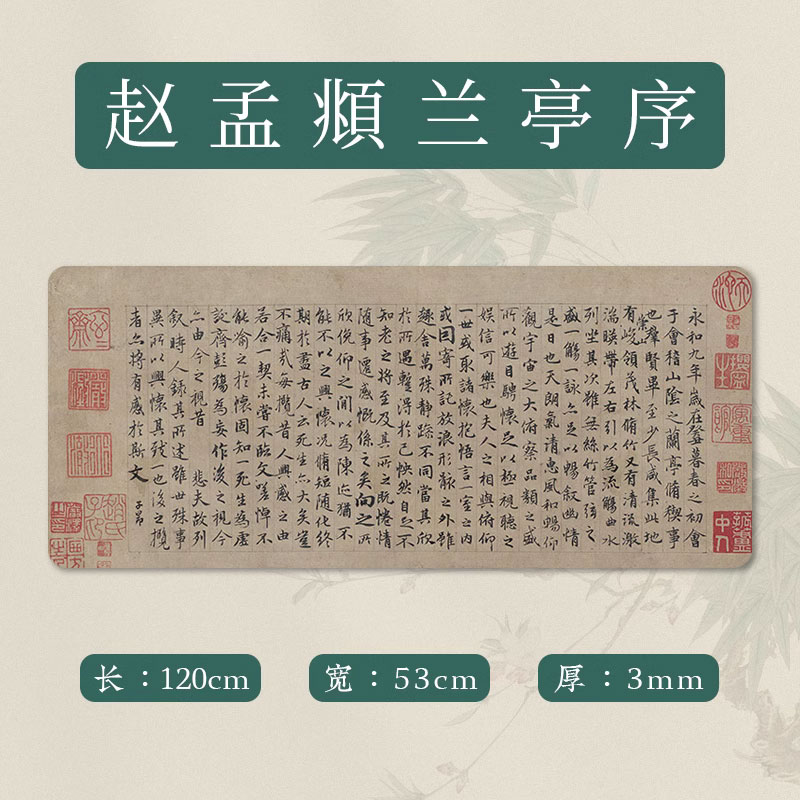 赵孟頫兰亭序
永和九年歲在癸丑暮春之初會
于會稽山陰之蘭亭脩稧事
也羣賢畢至少長咸集此地
有崇山峻領茂林脩竹又有清流激
湍暎帶左右引以為流觴曲水
列坐其次雖無絲竹管弦之
盛一觴一詠亦足以暢叙幽情
是日也天朗氣清惠風和暢仰
觀宇宙之大俯察品類之盛
所以遊目騁懷足以極視聽之
娛信可樂也夫人之相與俯仰
一世或取諸懷抱悟言一室之內
或因寄所託放浪形骸之外雖
趣舍萬殊静躁不同當其欣
於所遇蹔得於己怏然自足不
知老之將至及其所之既惓情
隨事遷感慨係之矣向之所
欣俛仰之閒以為陳迹猶不
能不以之興懷況脩短隨化終
期於盡古人云死生亦大矣豈
不痛哉每攬昔人興感之由
若合一契未嘗不臨文嗟悼不
能喻之於懷固知一死生為虛
誕齊彭殤為妄作後之視今
亦由今之視昔 悲夫故列
叙時人錄其所述雖世殊事
異所以興懷其致一也後之攬
者亦將有感於斯文
子昂
长：120cm
宽：53cm
厚：3mm